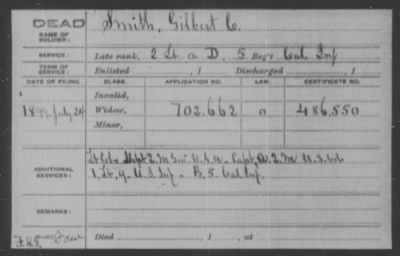 DEAD
NAME OF SOLDIER:
Smith, Gilbert C.
SERVICE:
Late rank, 2 Lt. Co. D, 5 Reg't Cal. Inf
TERM OF SERVICE:
Enlisted , 1 Discharged , 1
DATE OF FILING. CLASS. APPLICATION NO. LAW. CERTIFICATE NO.
Invalid,
July 24 Widow, 702.662 O. 486,550
Minor,
ADDITIONAL SERVICES:
1, Lt. 9 U.S. Inf - B. 5. Cal Inf.
REMARKS:
Died , 1 , at